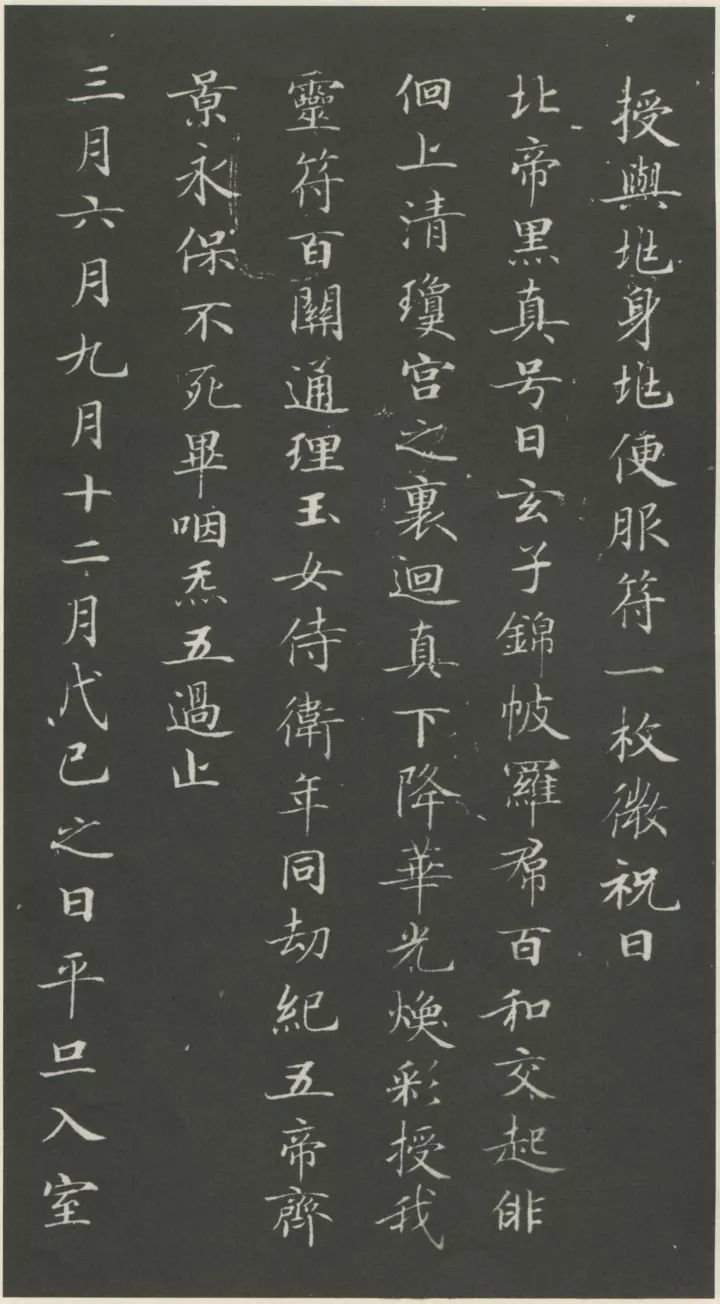 授與兆身兆便服符一枚微祝曰
北帝黑真号曰玄子錦帔羅帬百和交起俳
佪上清瓊宫之裏迴真下降華光煥彩授我
靈符百關通理玉女侍衛年同劫紀五帝齊
景永保不死畢咽炁五過止
三月六月九月十二月戊巳之日平旦入室